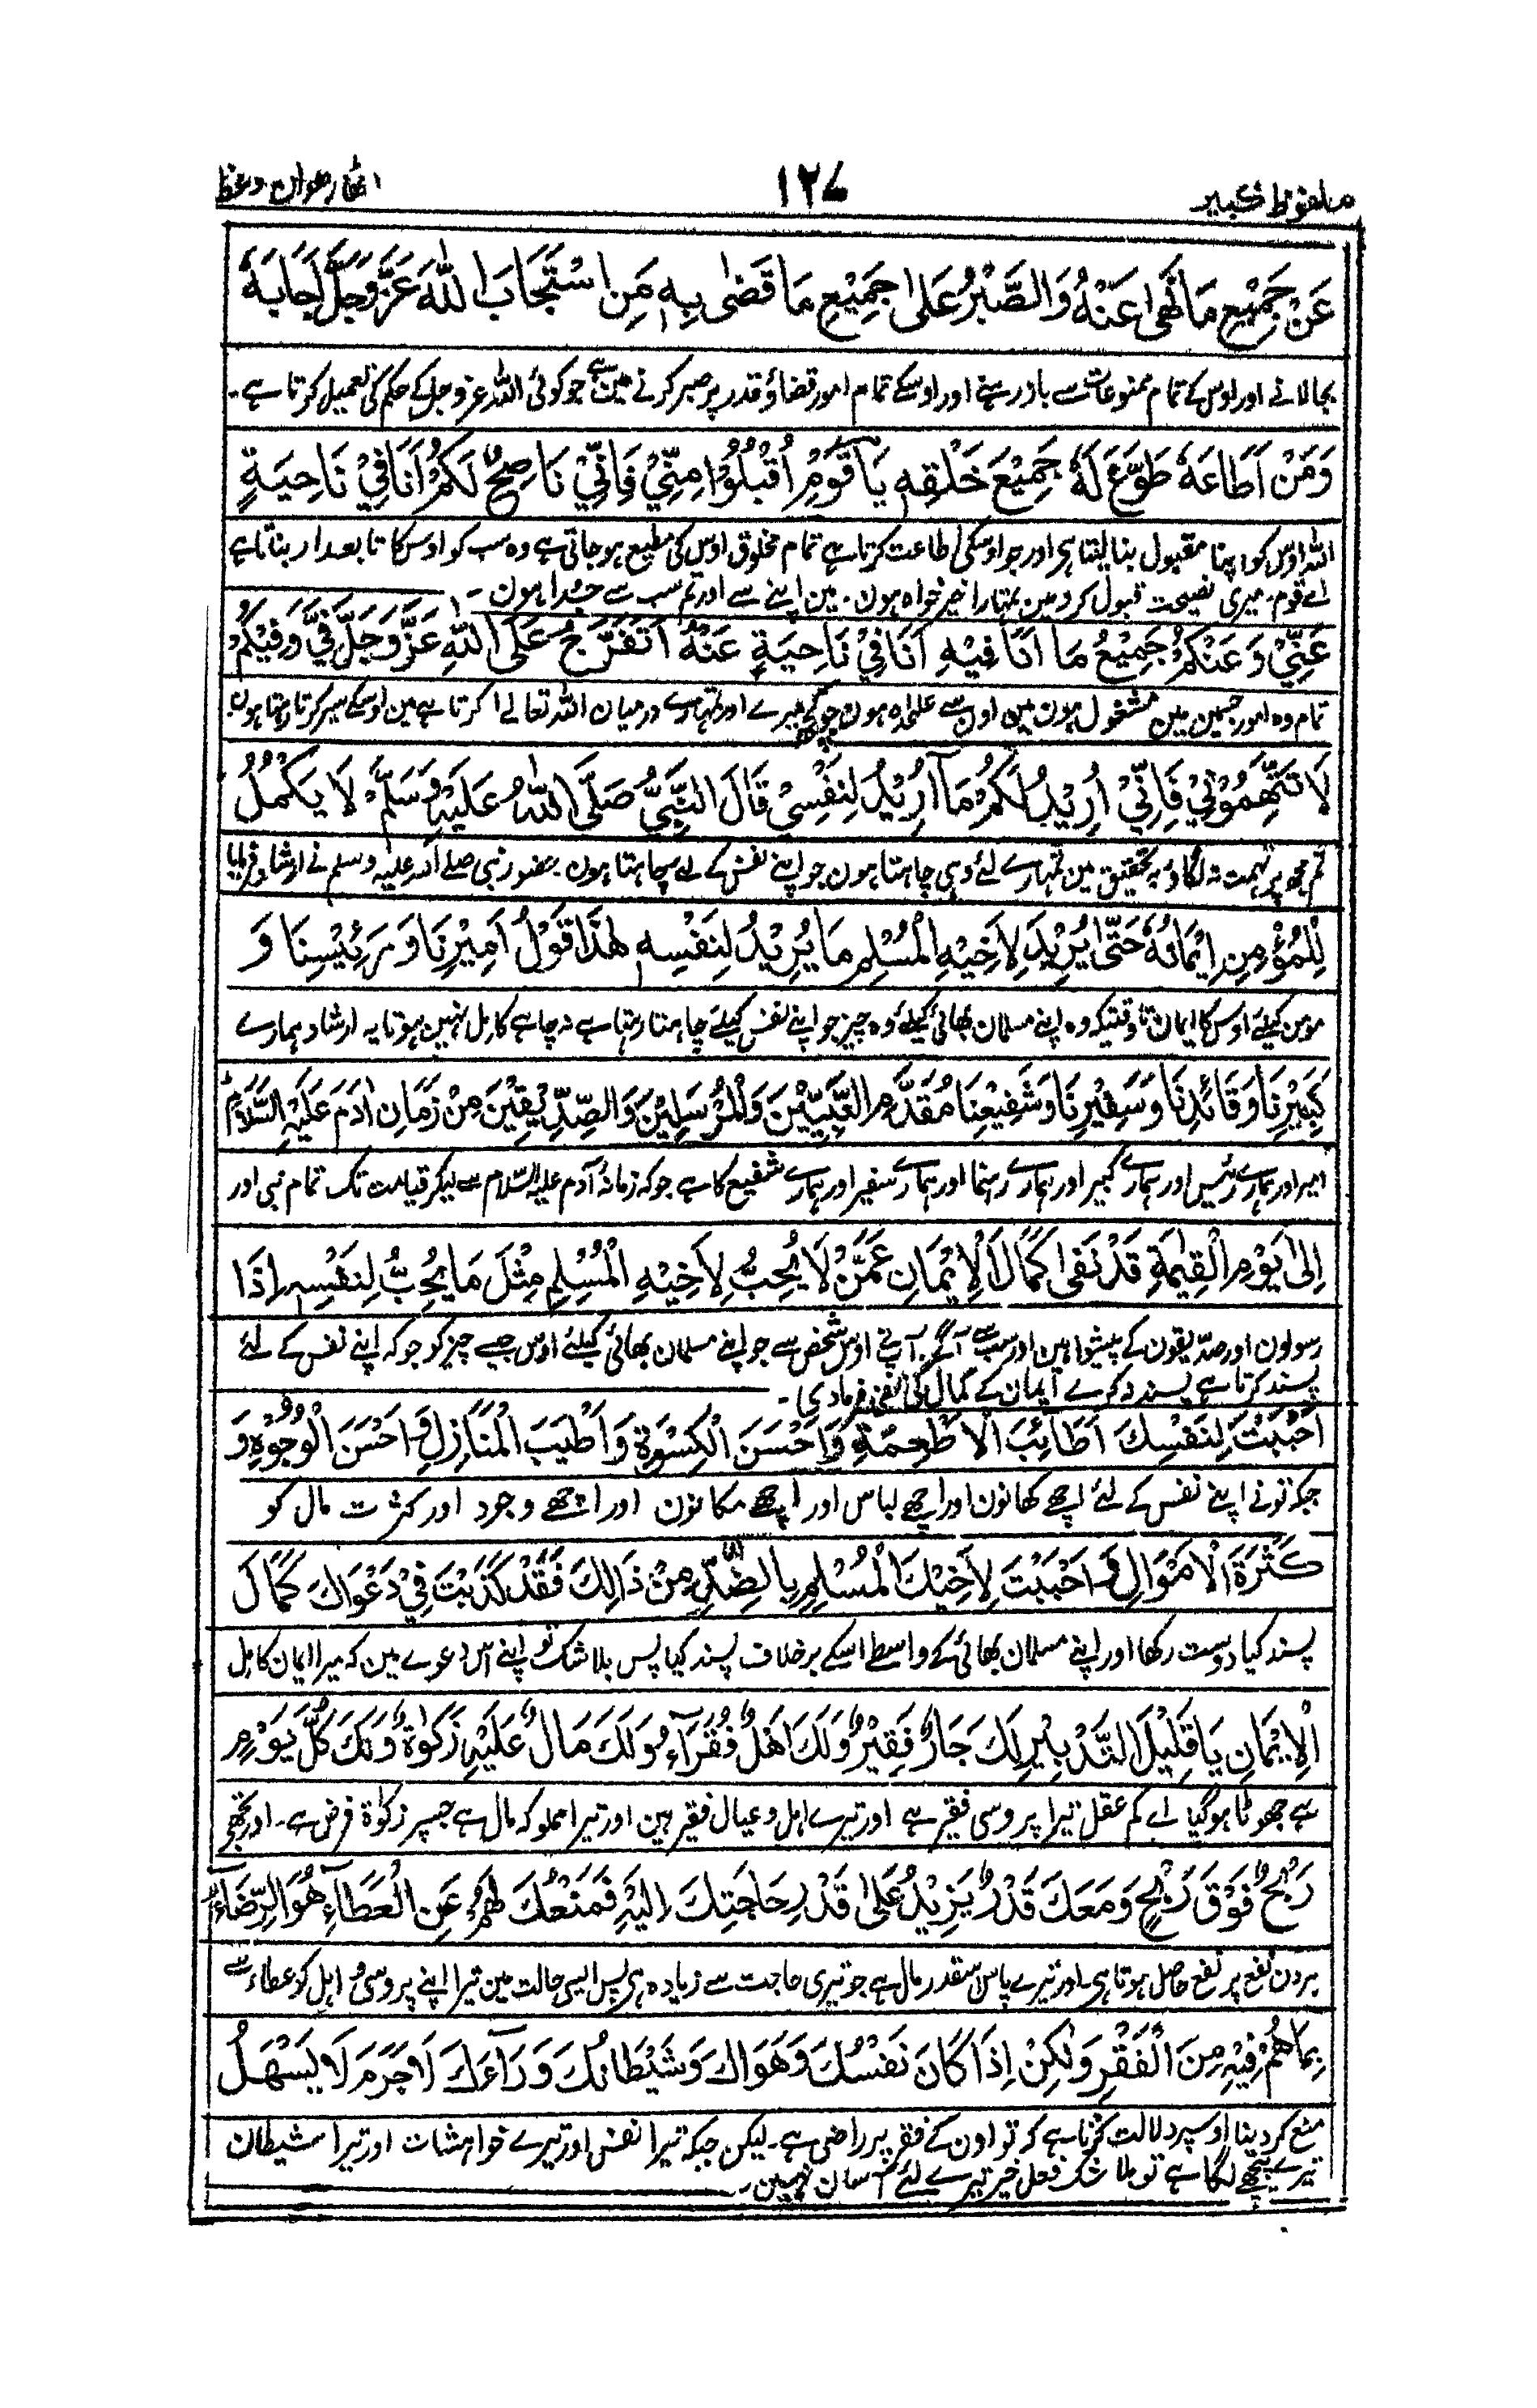 ملفوظ کبیر
۱۲۷
اٹھارھواں وعظ
عَنْ جَمِيْعِ مَا نَهٰى عَنْهُ وَالصَّبْرُ عَلٰى جَمِيْعِ مَا قَضٰى بِهٖ مَنِ اسْتَجَابَ اللّٰهَ عَزَّ وَجَلَّ اَجَابَهٗ
بجا لانے اور اوس کے تمام ممنوعات سے باز رہنے اور اوسکے تمام امور قضا و قدر پر صبر کرنے مین ہے جو کوئی اللہ عزوجل کے حکم کی تعمیل کرتا ہے۔
وَمَنْ اَطَاعَهٗ طَوَّعَ لَهٗ جَمِيْعَ خَلْقِهٖ يَا قَوْمِ اُقْبُلُوْا مِنِّيْ فَاِنِّيْ نَاصِحٌ لَكُمْ اَنَا فِيْ نَاحِيَةٍ
اللہ اوس کو اپنا مقبول بنا لیتا ہی اور جو اوسکی اطاعت کرتا ہے تمام مخلوق اوس کی مطیع ہو جاتی ہے وہ سب کو اوس کا تابعدار بناتا ہے
اے قوم۔ میری نصیحت قبول کرو مین تمہارا خیر خواہ ہون۔ مین اپنے سے اور تم سب سے جدا ہون۔
عَنِّيْ وَعَنْكُمْ جَمِيْعُ مَا اَنَا فِيْهِ اَنَا فِيْ نَاحِيَةٍ عَنْهُ اَتَفَرَّجُ عَلَى اللّٰهِ عَزَّ وَجَلَّ فِيَّ وَفِيْكُمْ
تمام وہ امور جسمین مین مشغول ہون مین اون سے علٰحدہ ہون جو کچھ میرے اور تمہارے درمیان اللہ تعالےٰ کرتا ہے مین اوسکے سیر کرتا رہتا ہون۔
لَا تَتَّهِمُوْنِيْ فَاِنِّيْ اُرِيْدُ لَكُمْ مَا اُرِيْدُ لِنَفْسِيْ قَالَ النَّبِيُّ صَلَّى اللّٰهُ عَلَيْهِ وَسَلَّمَ لَا يَكْمُلُ
تم مجھ پر تہمت نہ لگاؤ بہ تحقیق مین تمہارے لئے وہی چاہتا ہون جو اپنے نفس کے لیے چاہتا ہون حضور نبی صلے اللہ علیہ وسلم نے ارشاد فرمایا
لِلْمُؤْمِنِ اِيْمَانُهٗ حَتّٰى يُرِيْدَ لِاَخِيْهِ الْمُسْلِمِ مَا يُرِيْدُ لِنَفْسِهٖ هٰذَا قَوْلُ اَمِيْرِنَا وَرَئِيْسِنَا وَ
مومن کیلئے اوس کا ایمان تاوقتیکہ وہ اپنے مسلمان بھائی کیلئے وہ چیز جو اپنے نفس کیلئے چاہتا رہتا ہے نہ چاہے کامل نہین ہوتا یہ ارشاد ہمارے
كَبِيْرِنَا وَقَائِدِنَا وَسَفِيْرِنَا وَشَفِيْعِنَا مُقَدَّمِ النَّبِيِّيْنَ وَالْمُرْسَلِيْنَ وَالصِّدِّيْقِيْنَ مِنْ زَمَانِ اٰدَمَ عَلَيْهِ السَّلَامُ
امیر اور ہمارے رئیس اور ہمارے کبیر اور ہمارے رہنما اور ہمارے سفیر اور ہمارے شفیع کا ہے جو کہ زمانۂ آدم علیہ السلام سے لیکر قیامت تک تمام نبی اور
اِلٰى يَوْمِ الْقِيٰمَةِ قَدْ نَفٰى كَمَالَ الْاِيْمَانِ عَمَّنْ لَا يُحِبُّ لِاَخِيْهِ الْمُسْلِمِ مِثْلَ مَا يُحِبُّ لِنَفْسِهٖ اِذَا
رسولون اور صدیقون کے پیشوا ہین اور سب سے آگے۔ آپنے اوس شخص سے جو اپنے مسلمان بھائی کیلئے اوس جیسے چیز کو جو کہ اپنے نفس کے لئے
پسند کرتا ہے پسند نہ کرے ایمان کے کمال کی نفی فرما دی۔
اَحْبَبْتَ لِنَفْسِكَ اَطَائِبَ الْاَطْعِمَةِ وَاَحْسَنَ الْكِسْوَةِ وَاَطْيَبَ الْمَنَازِلِ وَاَحْسَنَ الْوُجُوْهِ وَ
جبکہ تونے اپنے نفس کے لئے اچھے کھانون اور اچھے لباس اور اچھے مکانون اور اچھے وجود اور کثرت مال کو
كَثْرَةَ الْاَمْوَالِ وَاَحْبَبْتَ لِاَخِيْكَ الْمُسْلِمِ بِالضِّدِّ مِنْ ذَالِكَ فَقَدْ كَذَبْتَ فِيْ دَعْوَاكَ كَمَالَ
پسند کیا دوست رکھا اور اپنے مسلمان بھائی کے واسطے اسکے برخلاف پسند کیا پس بلا شک تو اپنے اس دعوے مین کہ میرا ایمان کامل
الْاِيْمَانِ يَا قَلِيْلَ التَّدْبِيْرِ لَكَ جَارٌ فَقِيْرٌ وَلَكَ اَهْلٌ فُقَرَآءُ وَلَكَ مَالٌ عَلَيْهِ زَكٰوةٌ وَلَكَ كُلَّ يَوْمٍ
ہے جھوٹا ہو گیا اے کم عقل تیرا پروسی فقیر ہے اور تیرے اہل و عیال فقیر ہین اور تیرا مملوکہ مال ہے جسپر زکوٰۃ فرض ہے۔ اور تجھے
رَبْحٌ فَوْقَ رَبْحٍ وَمَعَكَ قَدْرٌ يَزِيْدُ عَلٰى قَدْرِ حَاجَتِكَ اِلَيْهِ فَمَنْعُكَ لَهُمْ عَنِ الْعَطَآءِ هُوَ الرِّضَآءُ
ہر دن نفع پر نفع حاصل ہوتا ہی۔ اور تیرے پاس اسقدر مال ہے جو تیری حاجت سے زیادہ ہی پس ایسی حالت مین تیرا اپنے پروسی و اہل کو عطاء سے
بِمَا هُمْ فِيْهِ مِنَ الْفَقْرِ وَلٰكِنْ اِذَا كَانَ نَفْسُكَ وَهَوَاكَ وَشَيْطَانُكَ وَرَآءَكَ لَا جَرَمَ لَا يَسْهَلُ
منع کر دینا اوسپر دلالت کرتا ہے کہ تو اون کے فقر پر راضی ہے۔ لیکن جبکہ تیرا نفس اور تیرے خواہشات اور تیرا شیطان
تیرے پیچھے لگا ہے تو بلا شک فعل خیر تیرے لئے آسان نہین۔